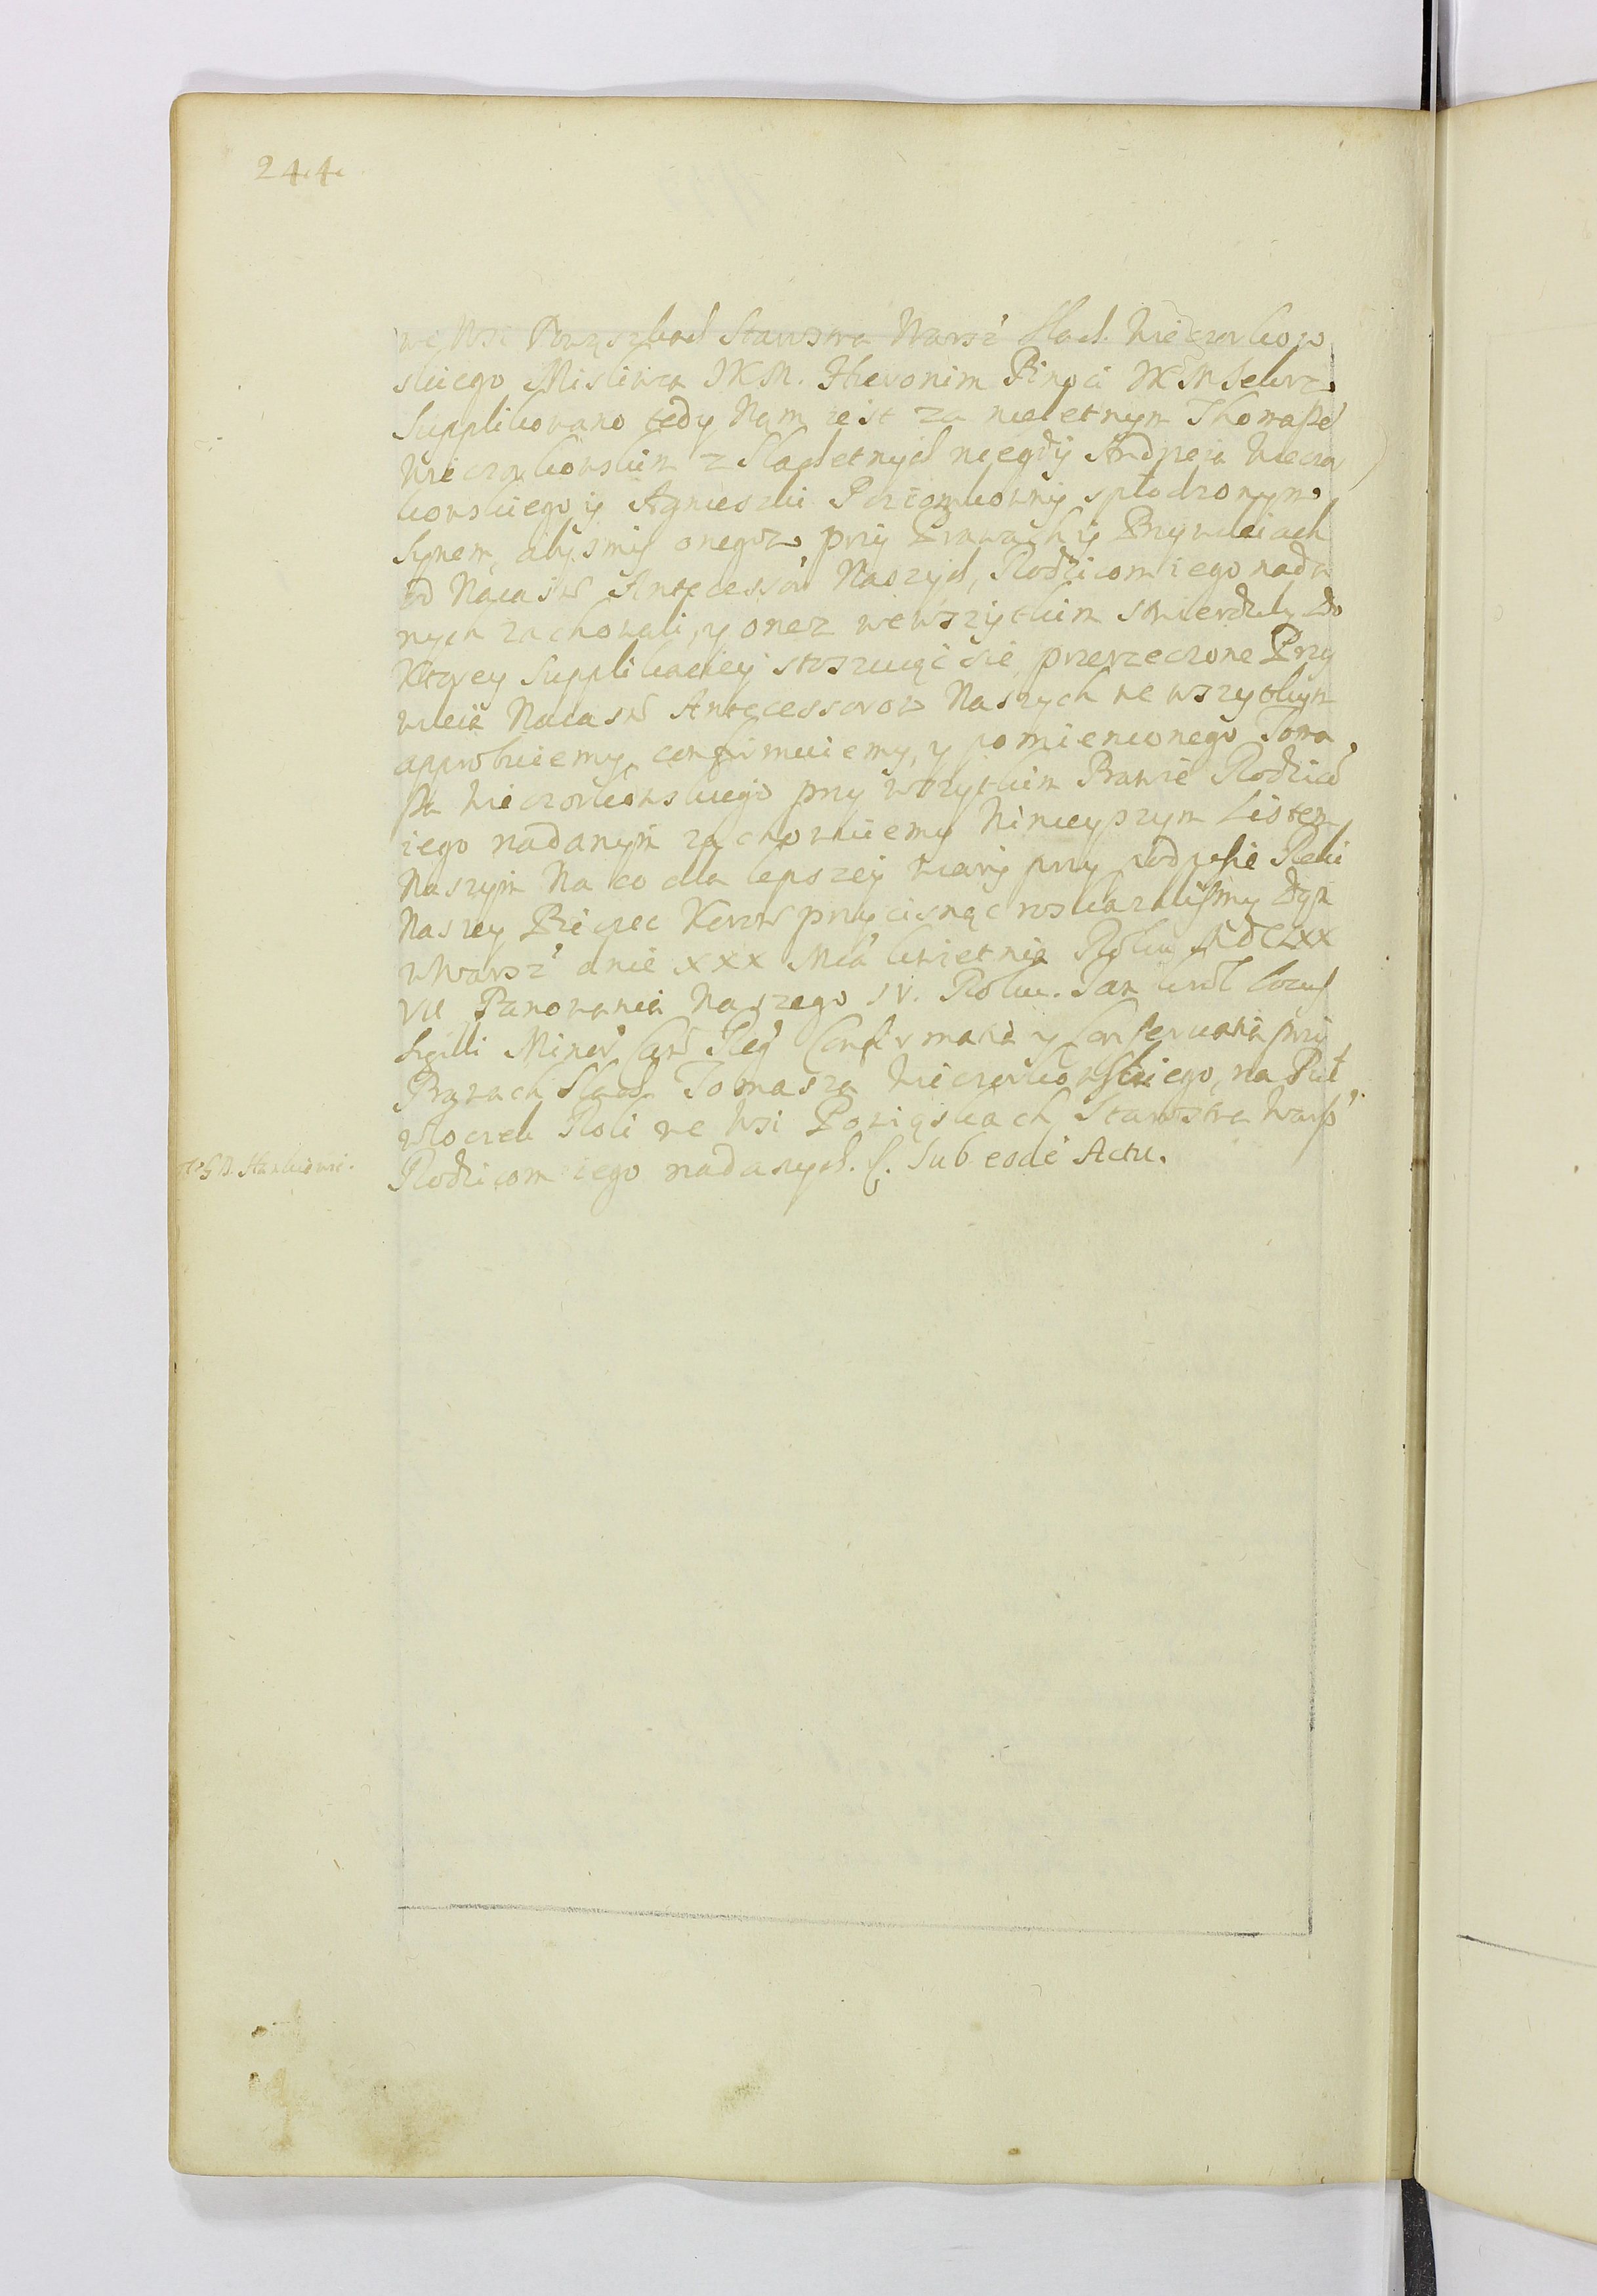 244
we Wsi Powązkach Starostwa Warsz' Slach. Wieczorkow
skiego Misliwca JKM. Hieronim Pinoci JKM Sekrz.
Supplikowano tedy Nam iest za nieletnym Thomaßē
Wieczorkowskim z Slachetnych niegdy Andrzeia Wieczor
kowskiego y Agnieszki Poziomkowny spłodzonym
Synem, abysmy onegoz przy Prawach y Przywileiach
od Naiasń Antecessorō Naszych, Rodzicom iego nada
nych zachowali, y onez we wszytkim stwierdzily do
Ktorey Supplikaciey stosuiąc sie przerzeczone Przy
wileia Naiasń Antecessorow Naszych we wszytkym
approbuiemy confirmuiemy, y pomienionego Toma
ßa Wieczorkowskiego przy wszytkim Prawie Rodzicō
iego nadanym zachowuiemy Ninieyszym Listem
Naszym Na co dla lepszey wiary przy podpisie Reki
Naszey Pieczec Koron przycisnąc roskazalismy Dan
w Warsz' dnia XXX Mca' kwietnia Roku MDCLXX
VII Panowania Naszego IV. Roku. Jan Krol Locus
Sigilli Minor' Can' Reg' Confirmatia y Conseruatia przy
Prawach Slach. Tomasza Wieczorkowskiego, na Puł
włoczek Roli we Wsi Powiąskach Starostwa Warß'
Rodzicom iego nadanych. S. Sub eode' Actu.